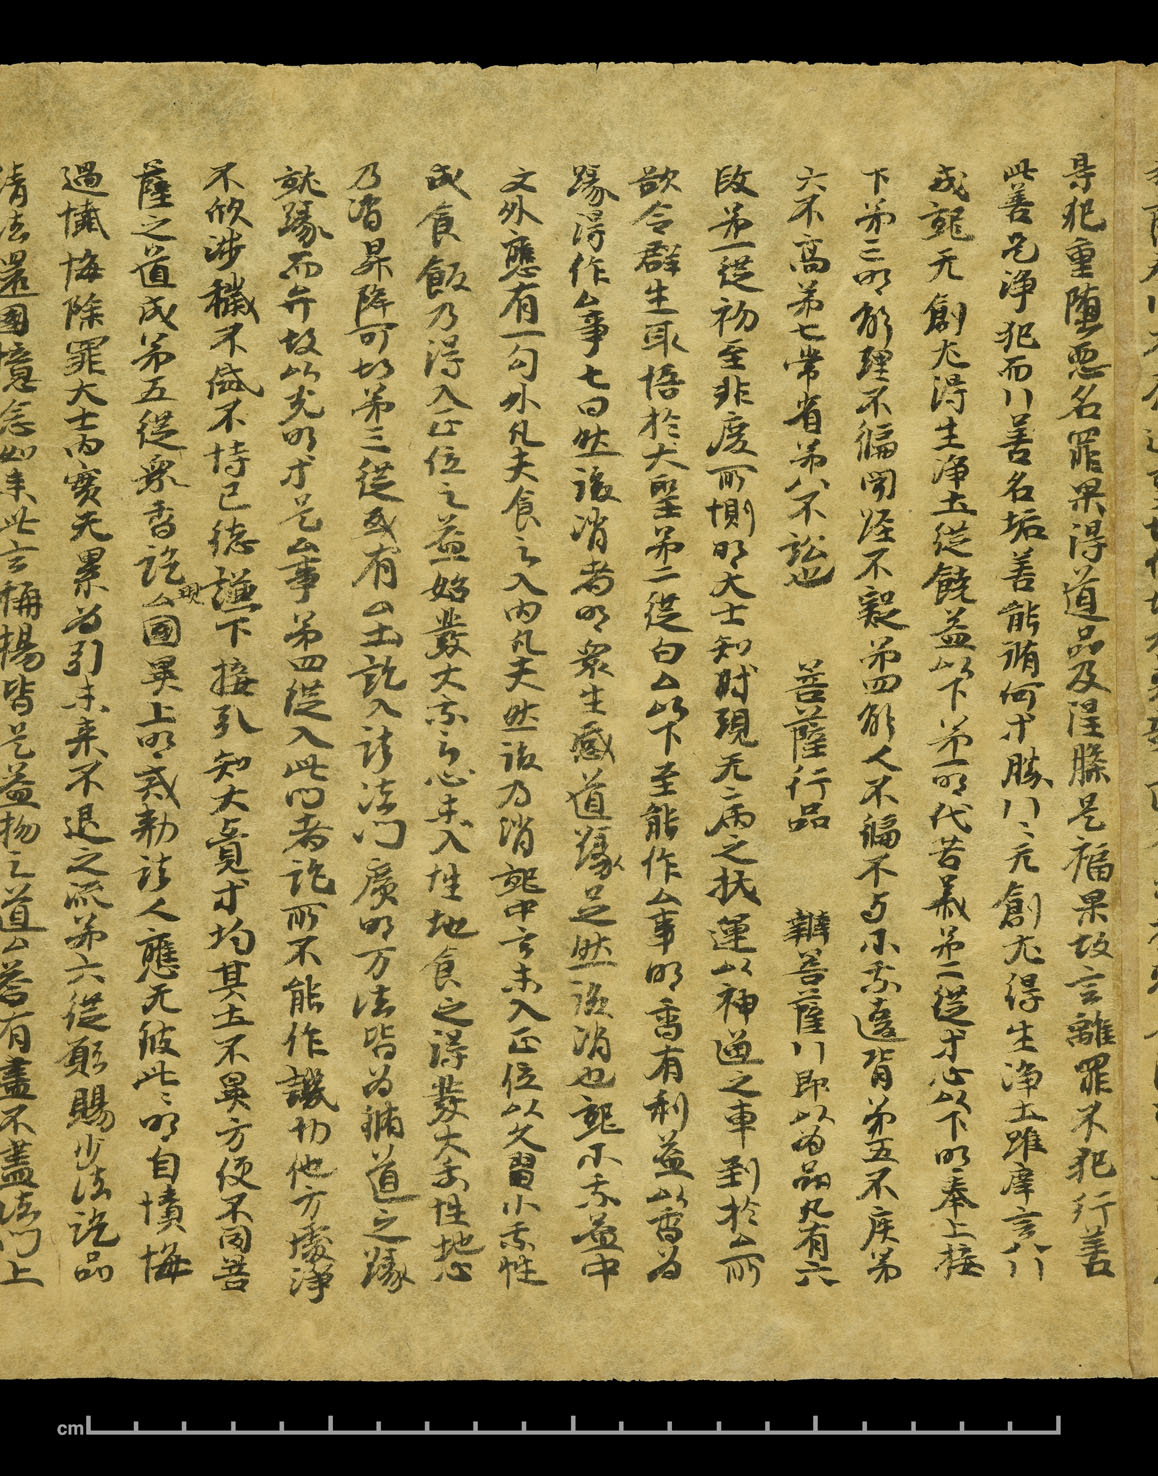 是犯重堕恶名罪果得道品及涅槃是福果故言離罪不犯行善
此善是淨犯而行善名垢善能脩何才勝行〻无創尤得生淨土唯摩言八行
成就无創尤得生淨土從饒益以下第一明代苦義第二從才心以下明奉上接
下第三明於理不徧聞经不疑第四於人不徧不与小乘違背第五不疾第
六不高第七常省第八不訟也 菩薩行品 辯菩薩行即以为品凡有六
段第一從初至非度所惻明大士知时現无病之状運以神通之車到於厶所
欲令群生取悟於大聖第二從白厶以下至能作厶事明香有利益以香为
緣得作厶事七日然後消者明衆生感道緣足然後消也就小乘益中
文外應有一句外凡夫食之入内凡夫然後乃消就中言未入正位以久習小乘性
成食飯乃得入正位之益始發大乘之心未入性地食之得發大乘性地心
乃皆昇降可切第三從或有厶土訖入諸法门廣明万法皆为補道之緣
就緣而弁故以光明才是厶事第四從入此门者訖所不能作譏切他方處淨
不欣涉穢不慼不恃己德謙下接引知大賁才均其土不異方便不同菩
薩之道成第五從衆香訖厶國異上明〻戒勅諸人應无彼此〻明自憤悔
過懴悔除罪大士内實无累为引未来不退之流第六從願賜少法訖品
清法還國憶念如来此言稱揚皆是益物之道厶荅有盡不盖法门上